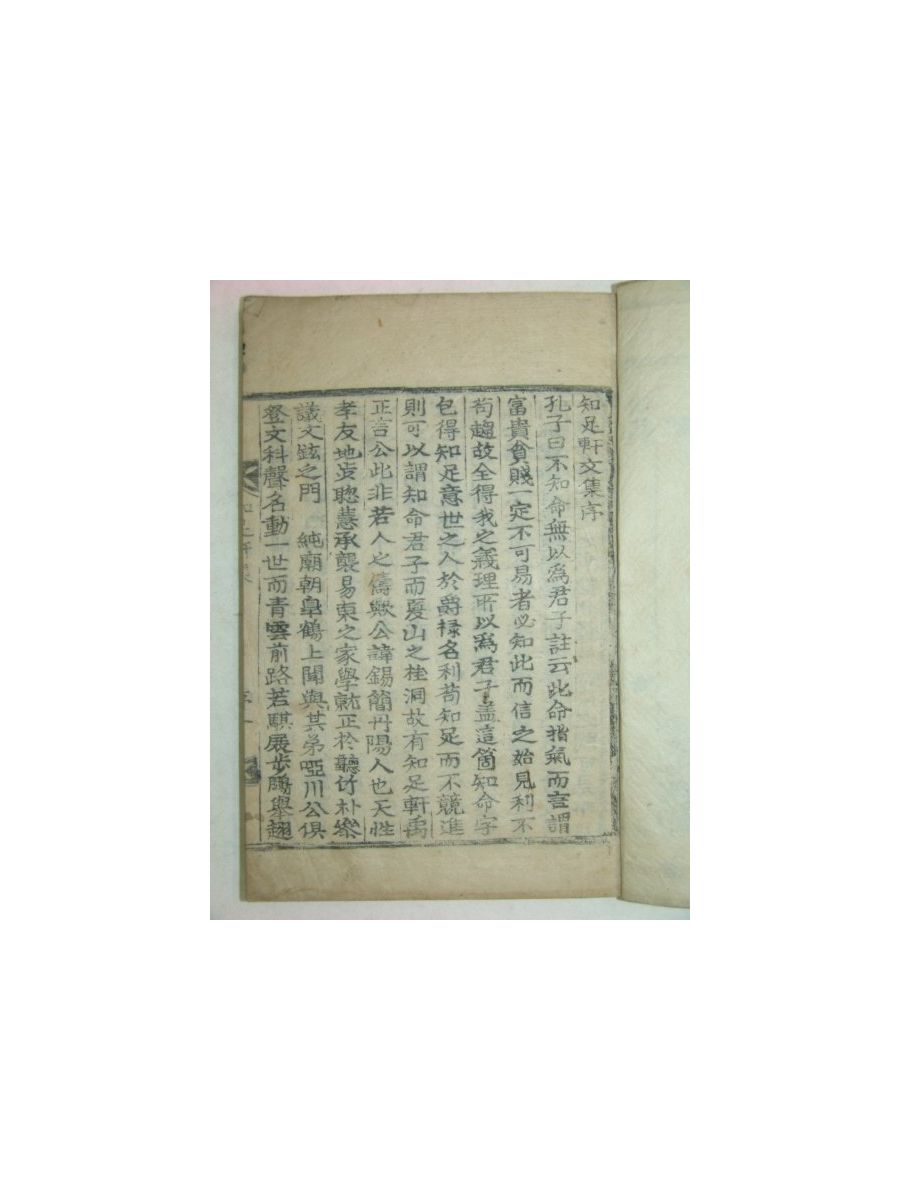 知足軒文集序
孔子曰不知命無以爲君子註云此命指氣而言謂
富貴貧賤一定不可易者必知此而信之始見利不
苟趨故全得我之義理所以爲君子盖這箇知命字
包得知足意世之人於爵祿名利苟知足而不競進
則可以謂知命君子而夏山之桂洞故有知足軒禹
正言公此非若人之儔歟公諱錫簡丹陽人也天性
孝友地步聦慧承襲易東之家學就正於聽竹朴參
議文鉉之門　純廟朝臯鶴上聞與其弟啞川公俱
登文科聲名動一世而青雲前路若騏展步鵬擧翅